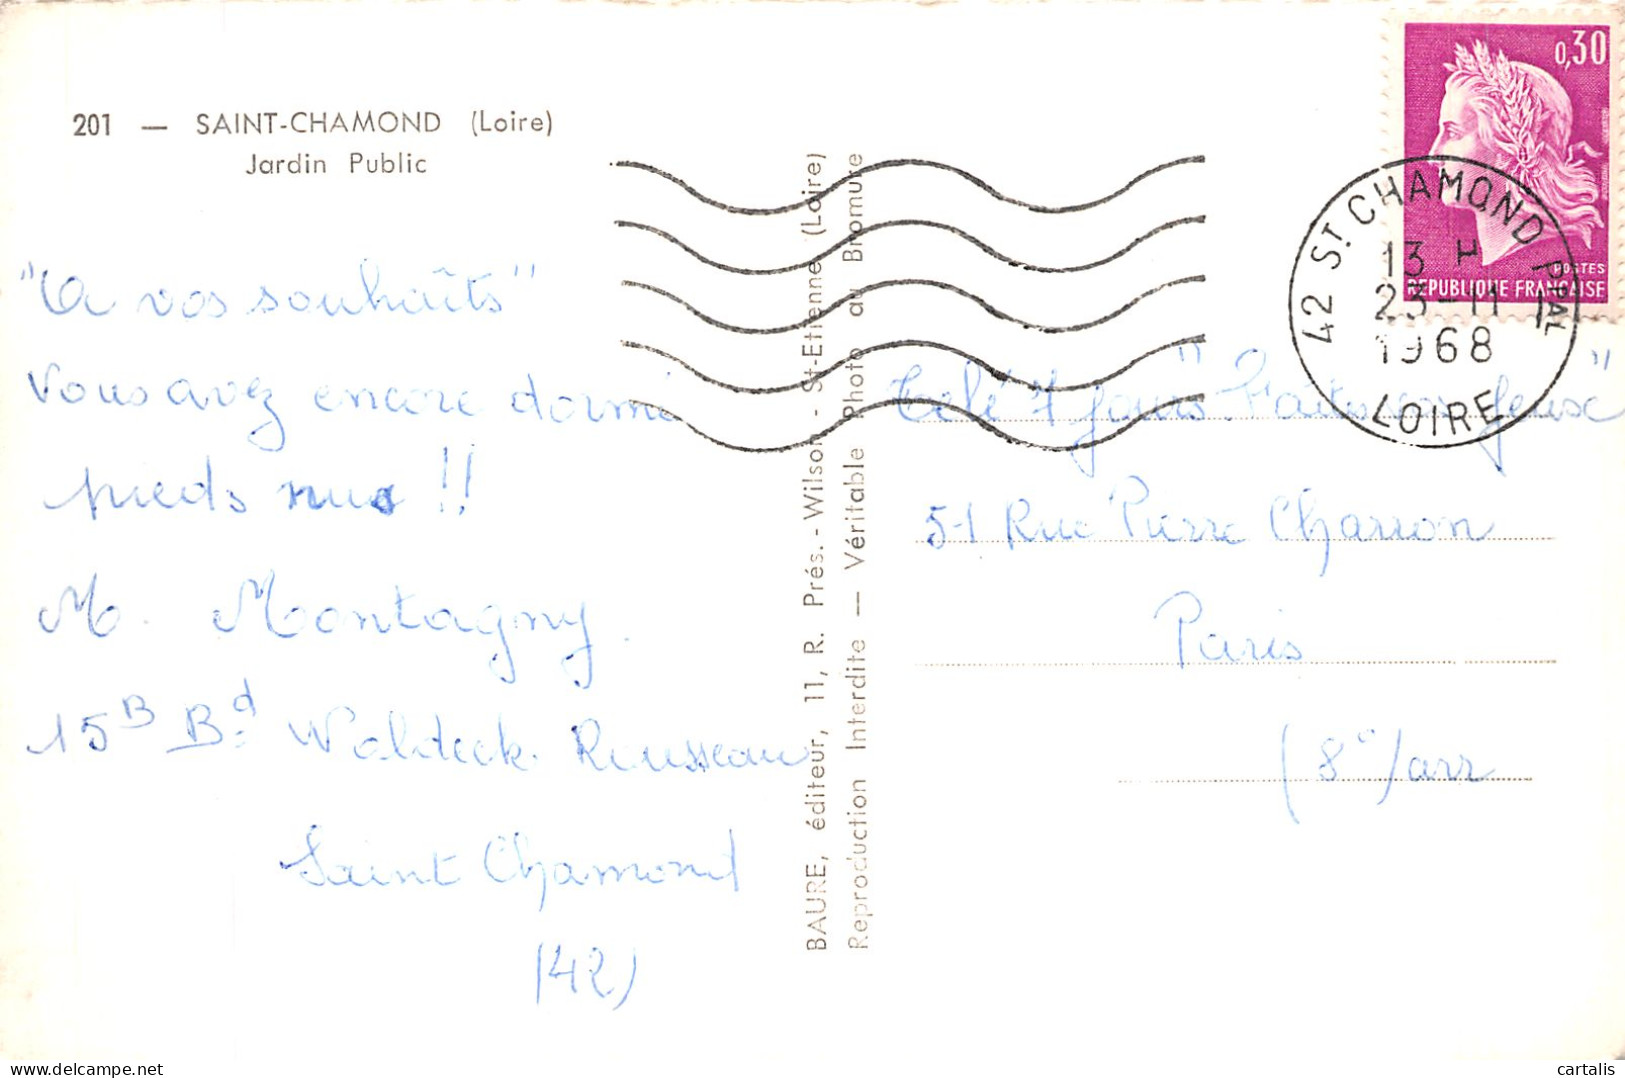 201 — SAINT-CHAMOND (Loire)
Jardin Public
"A vos souhaits"
Vous avez encore dormi
pieds nus !!
M. Montagny.
15 B Bd Waldeck. Rousseau
Saint Chamond
(42)
BAURE, éditeur, 11, R. Prés.-Wilson - St-Etienne (Loire)
Reproduction Interdite — Véritable Photo au Bromure
0,30
POSTES
REPUBLIQUE FRANÇAISE
42 ST CHAMOND PPAL
13 H
23-11
1968
LOIRE
Télé 7 Jours "Faites vos Jeux"
51 Rue Pierre Charron
Paris
(8°) arr
cartalis